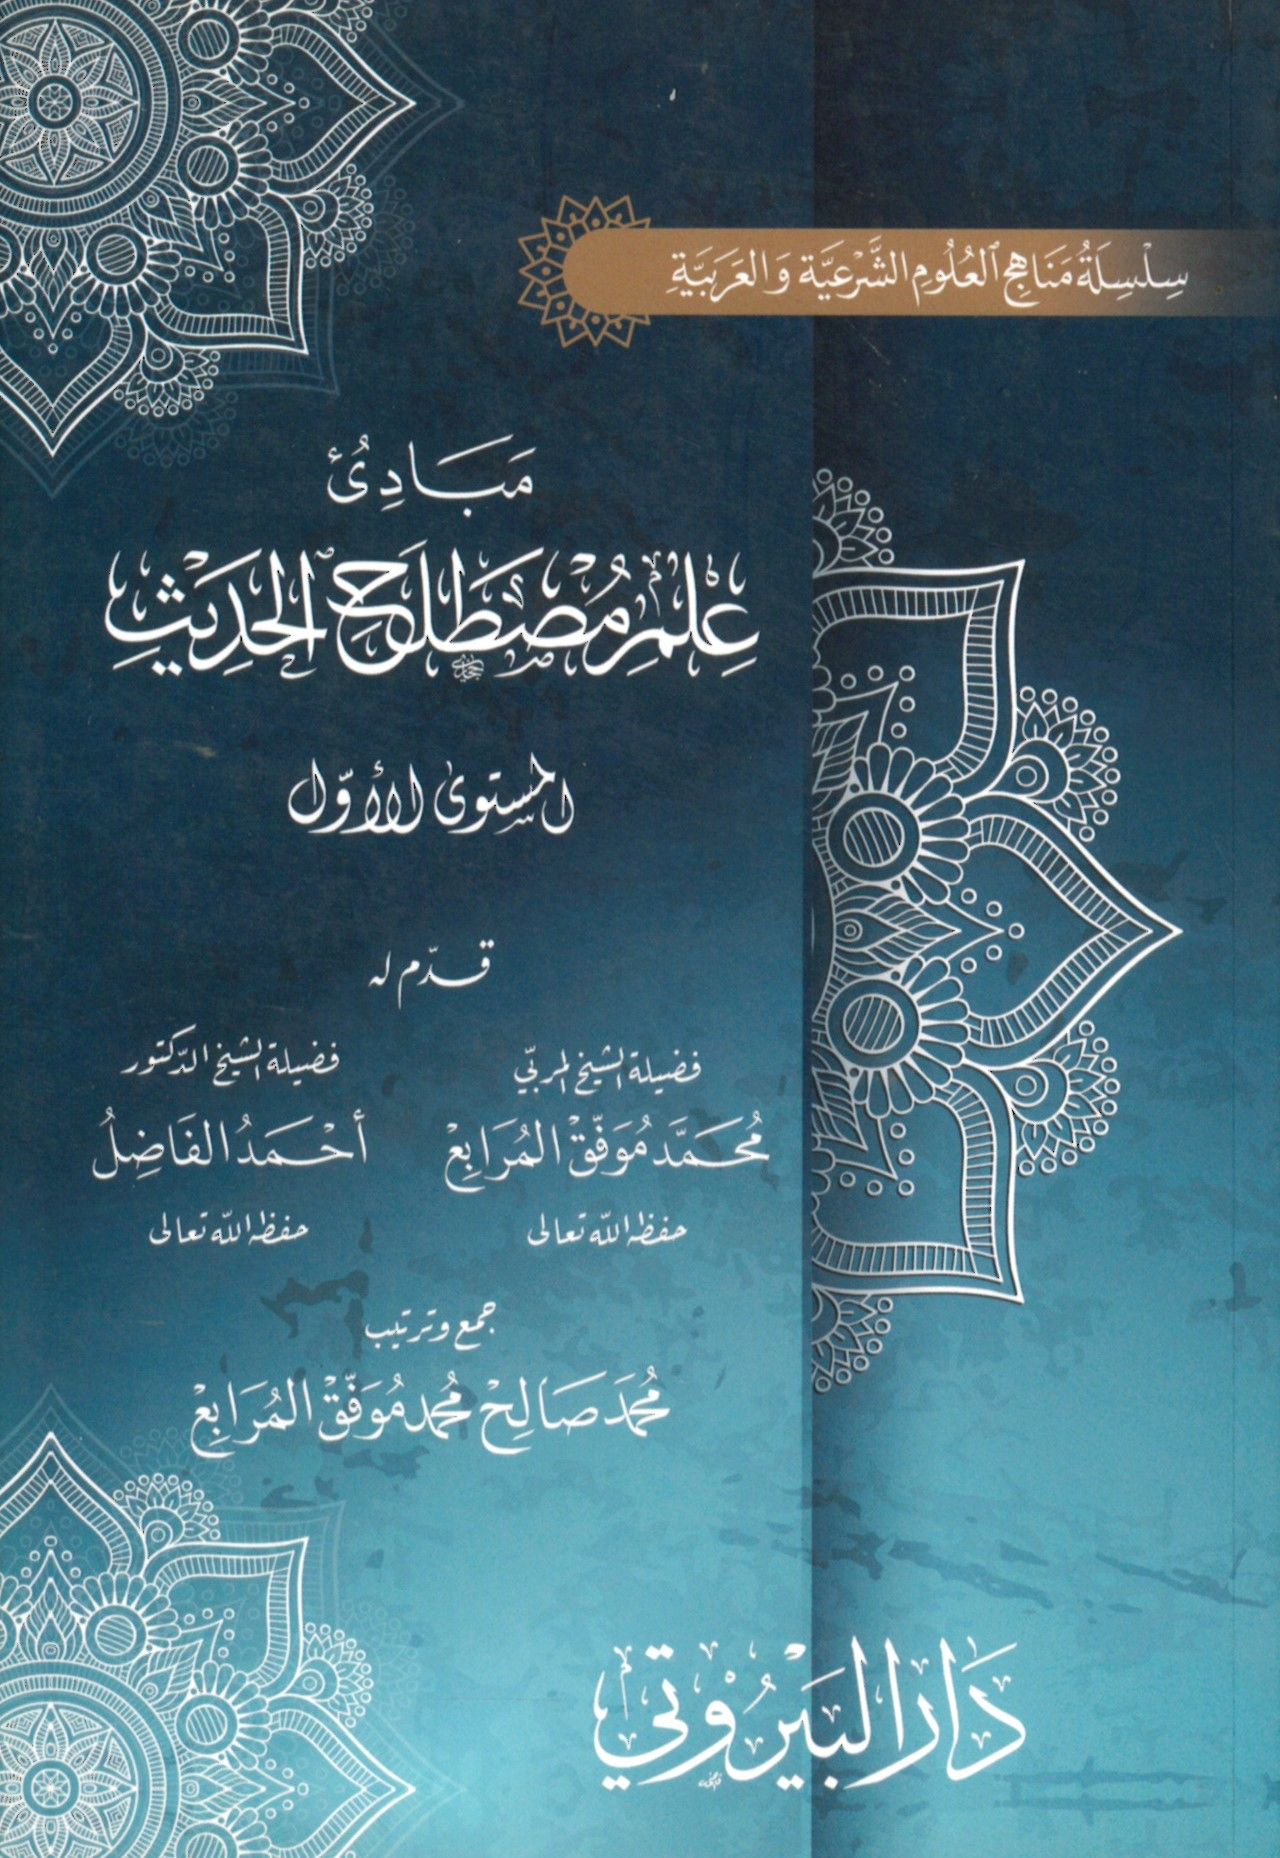 سِلْسِلَةُ مَنَاهِجِ العُلُومِ الشَّرْعِيَّةِ وَالعَرَبِيَّةِ
مَبَادِئُ
عِلْمِ مُصْطَلَحِ الحَدِيثِ
المستوى الأوّل
قدّم له
فضيلة الشيخ المربّي
مُحَمَّد مُوَفَّقْ المُرَابِعْ
حفظه الله تعالى
فضيلة الشيخ الدّكتور
أَحْمَدُ الفَاضِلُ
حفظه الله تعالى
جمع وترتيب
مُحَمَّد صَالِحْ مُحَمَّد مُوَفَّقْ المُرَابِعْ
دَارُ البَيْرُوتِي